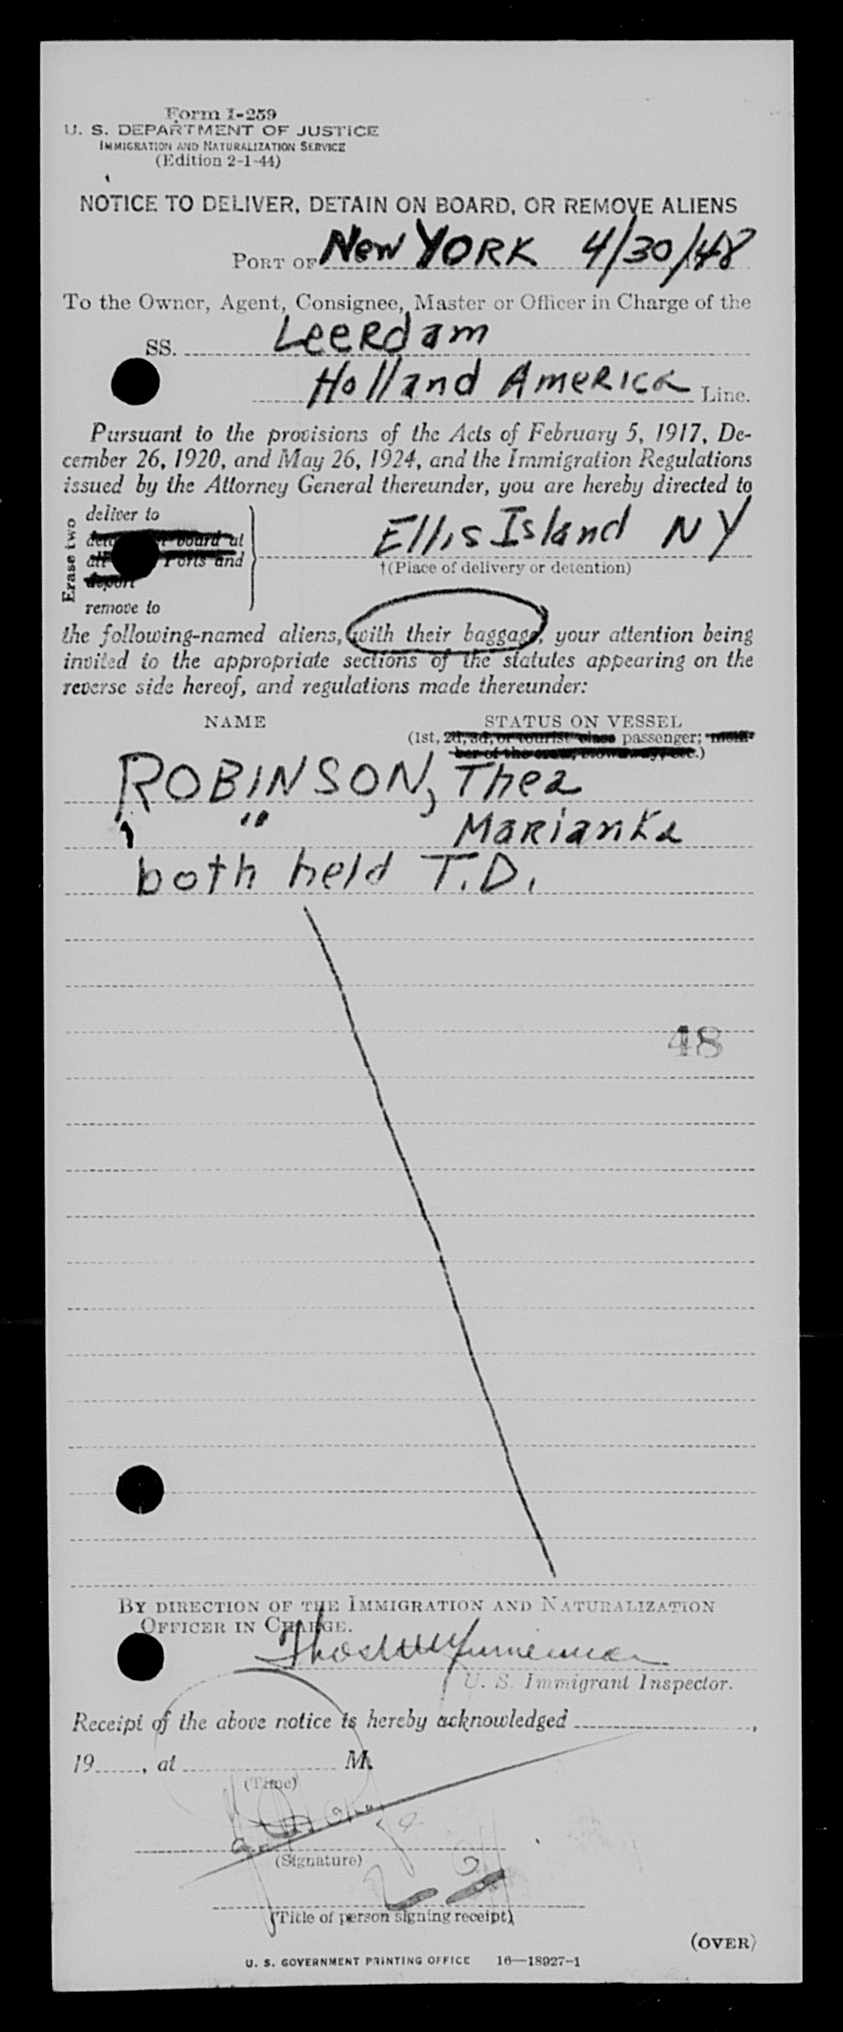 Form I-259
U. S. DEPARTMENT OF JUSTICE
IMMIGRATION AND NATURALIZATION SERVICE
(Edition 2-1-44)
NOTICE TO DELIVER, DETAIN ON BOARD, OR REMOVE ALIENS
PORT OF New YORK 4/30/48
To the Owner, Agent, Consignee, Master or Officer in Charge of the
SS. Leerdam
Holland America Line.
Pursuant to the provisions of the Acts of February 5, 1917, De-
cember 26, 1920, and May 26, 1924, and the Immigration Regulations
issued by the Attorney General thereunder, you are hereby directed to
Erase two
deliver to
board at
Ports and
deport
remove to
Ellis Island NY
†(Place of delivery or detention)
the following-named aliens, with their baggage, your attention being
invited to the appropriate sections of the statutes appearing on the
reverse side hereof, and regulations made thereunder:
NAME STATUS ON VESSEL
(1st, 2d, 3d, or tourist class passenger; mem-
ber of the crew, stowaway, etc.)
ROBINSON, Thea
" Marianka
both held T.D.
48
BY DIRECTION OF THE IMMIGRATION AND NATURALIZATION
OFFICER IN CHARGE.
U. S. Immigrant Inspector.
Receipt of the above notice is hereby acknowledged ,
19 , at M.
(Time)
(Signature)
(Title of person signing receipt)
(OVER)
U. S. GOVERNMENT PRINTING OFFICE 16—18927-1